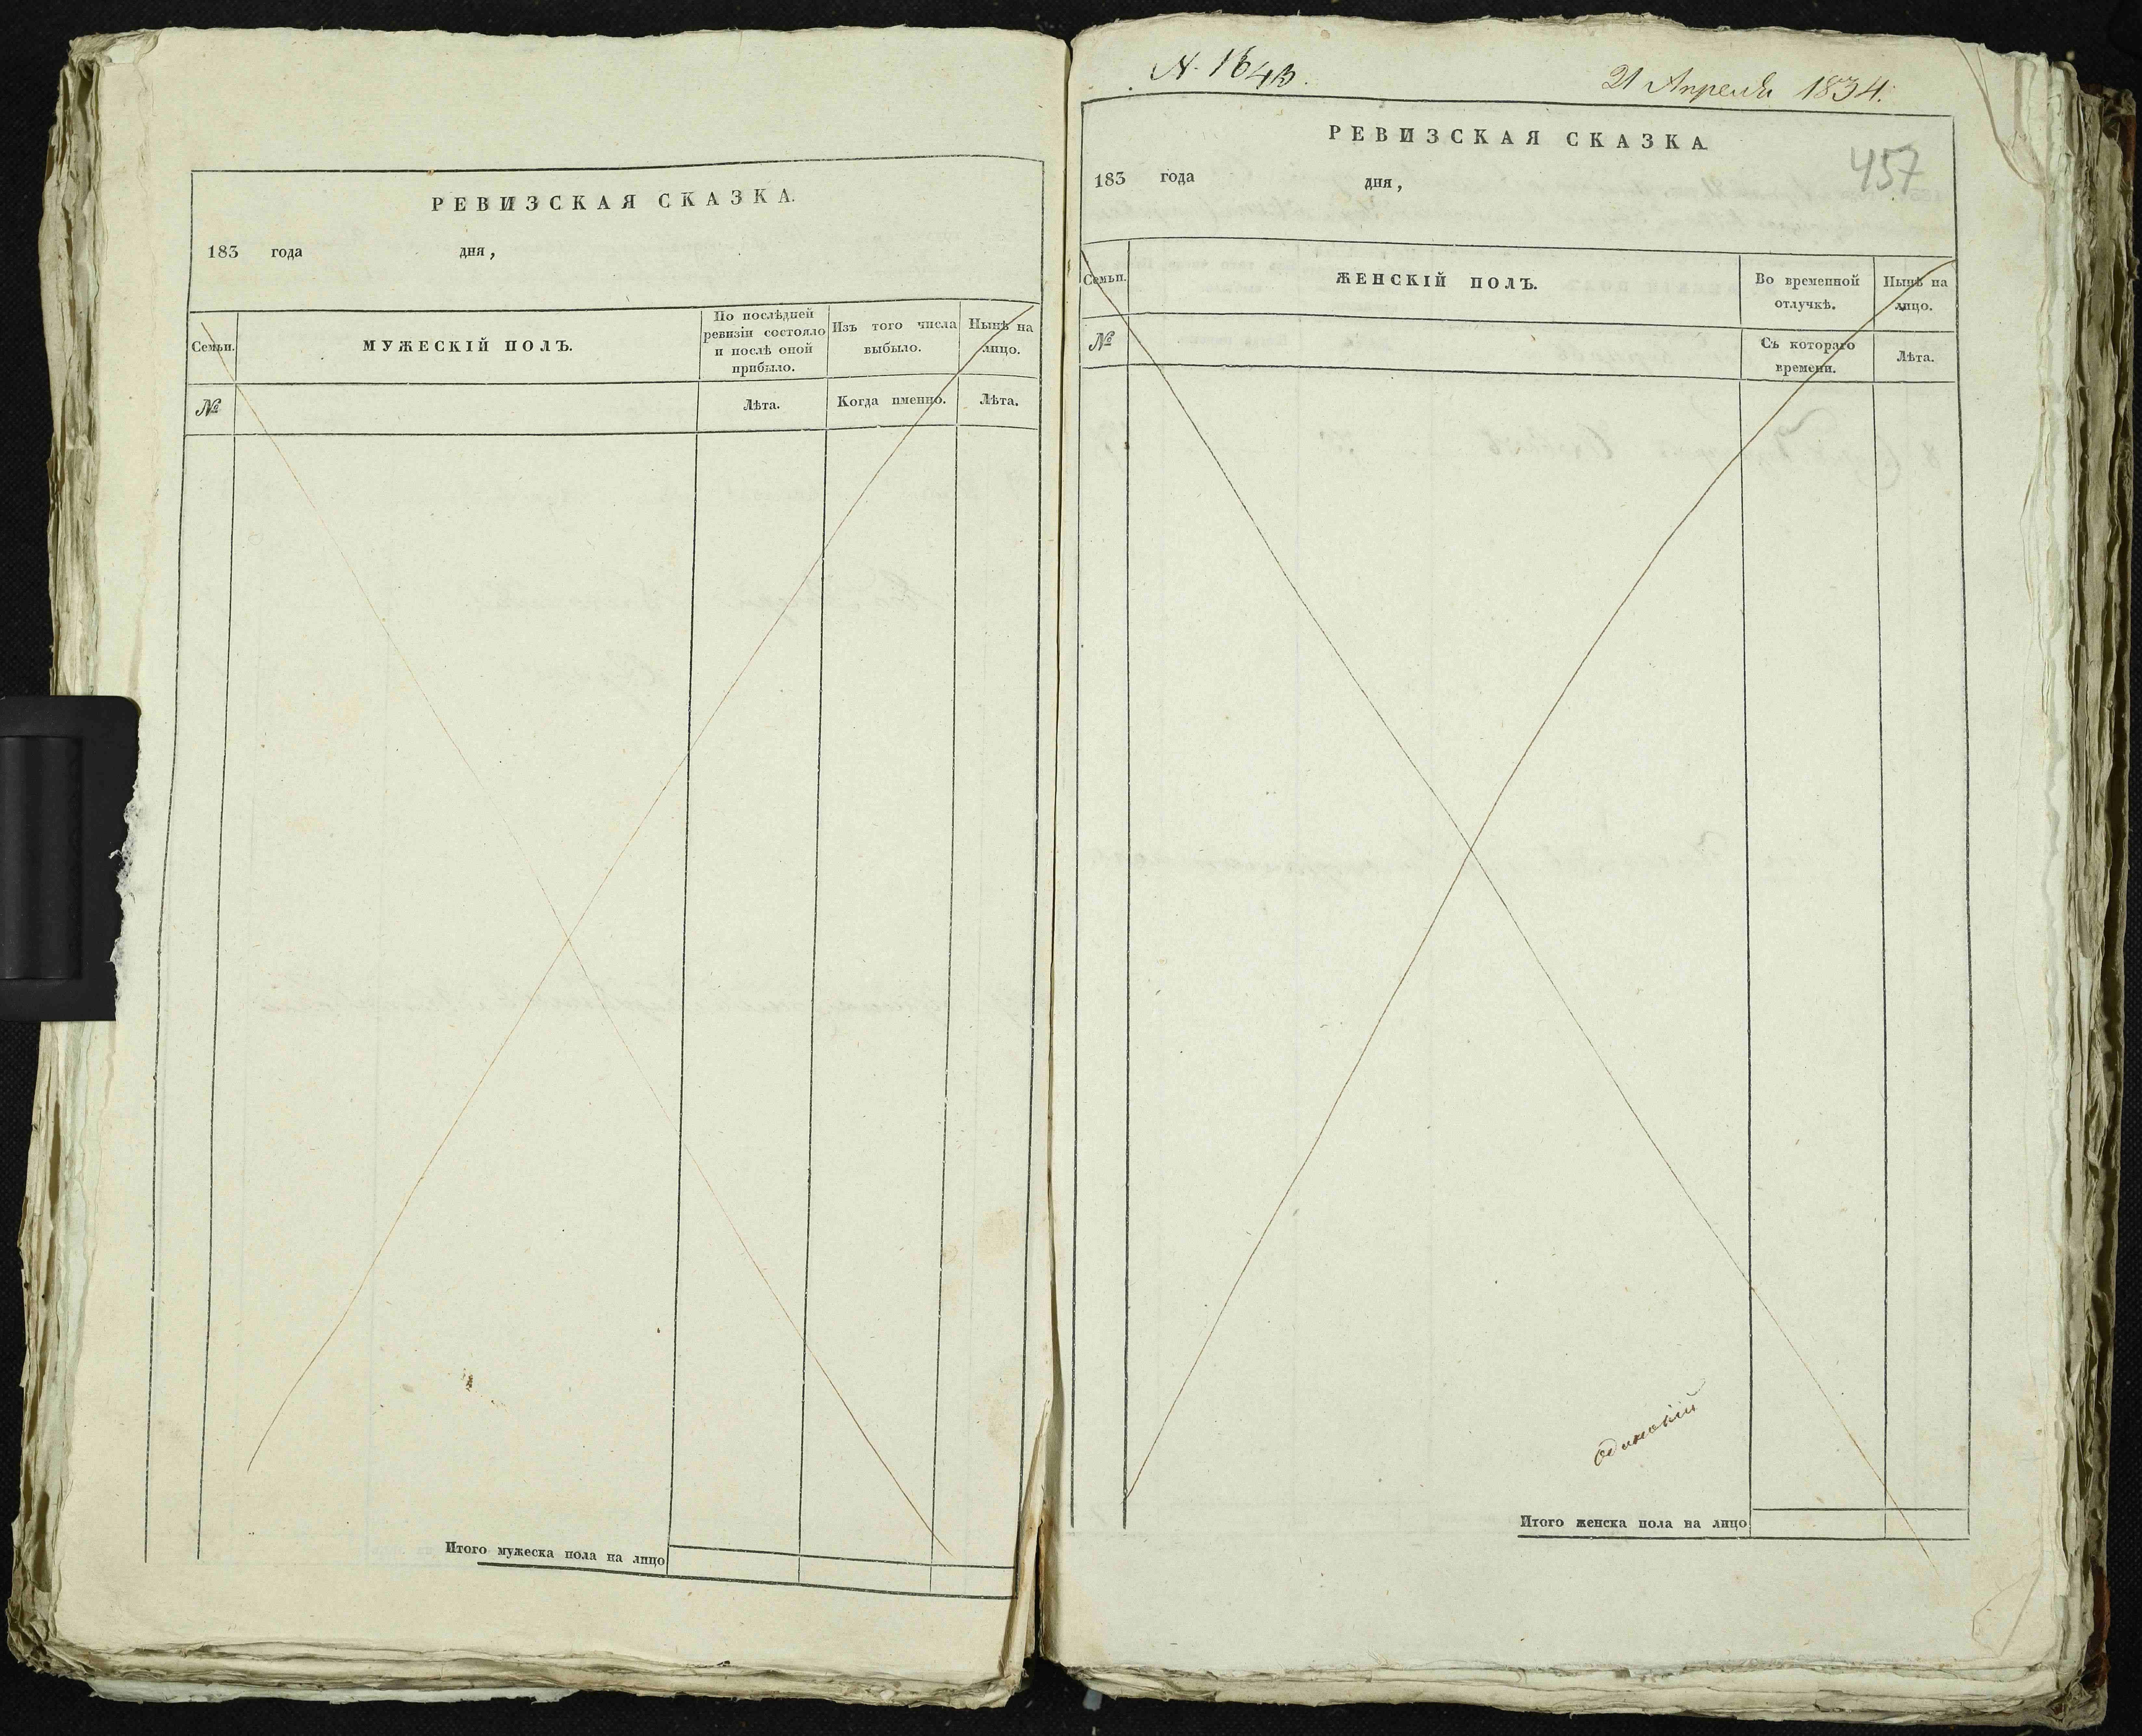 РЕВИЗСКАЯ СКАЗКА.
183 года дня,
Семьи.
МУЖЕСКІЙ ПОЛЪ.
По послѣдней ревизіи состояло и послѣ оной прибыло.
Изъ того числа выбыло.
Нынѣ на лицо.
№
Лѣта.
Когда именно.
Лѣта.
Итого мужеска пола на лицо
21 Апреля 1834.
РЕВИЗСКАЯ СКАЗКА
457
183 года дня,
Семьи.
ЖЕНСКІЙ ПОЛЪ.
Во временной отлучкѣ.
Нынѣ на лицо.
№
Съ котораго времени.
Лѣта.
одинокій
Итого женска пола на лицо